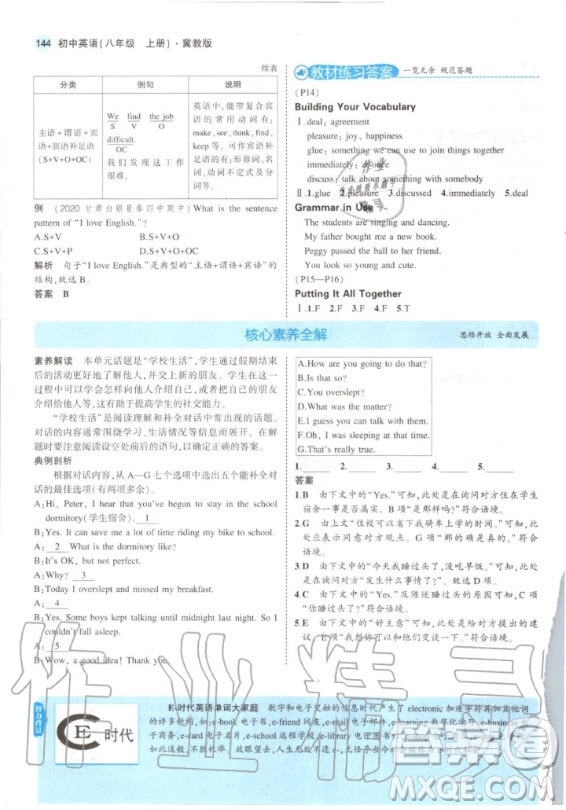 144 初中英语(八年级 上册)·冀教版
续表
分类 例句 说明
主语+谓语+宾语+宾语补足语(S+V+O+OC)
We find the job
S V O
difficult.
OC
我们发现这工作很难。
英语中,能带复合宾语的常用动词有:make, see, think, find, keep等。可作宾语补足语的有:形容词、名词、动词不定式及分词等。
例 (2020 甘肃白银景泰四中期中) What is the sentence
pattern of "I love English."?
A.S+V B.S+V+O
C.S+V+P D.S+V+O+OC
解析 句子"I love English."是典型的"主语+谓语+宾语"的
结构,故选B。
答案 B
教材练习答案 一览无余 规范答题
(P14)
Building Your Vocabulary
Ⅰ.deal; agreement
pleasure; joy, happiness
glue; something we can use to join things together
immediately; at once
discuss; talk about something with somebody
Ⅱ.1.glue 2.pleasure 3.discussed 4.immediately 5.deal
Grammar in Use
The students are singing and dancing.
My father bought me a new book.
Peggy passed the ball to her friend.
They look strong and colourful.
(P15—P16)
Putting It All Together
Ⅰ.1.F 2.F 3.F 4.F 5.T
核心素养全解 思维开放 全面发展
素养解读 本单元话题是"学校生活",学生通过假期结束
后的活动更好地了解他人,并交上新的朋友。学生要在这一
过程中可以尝试怎样向他人介绍自己,以及把自己的朋友
介绍给他人,这有助于提高学生的社交能力。
"学校生活"是阅读理解和补全对话中常出现的话题。
对话的内容通常围绕学习、生活情况等信息而展开,做题时
要注意阅读设空处前后的信息,以确定正确的答案。
典例剖析
根据对话内容,从A—G七个选项中选出五个能补全对
话的最佳选项(有两项多余)。
A: Hi, Peter, I hear that you've begun to stay in the school
dormitory(学生宿舍). 1
B: Yes. It can save me a lot of time riding my bike to school.
A: 2 What is the dormitory like?
B: It's OK, but not perfect.
A: Why? 3
B: Today I overslept and missed my breakfast.
A: 4
B: Yes. Some boys kept talking until midnight last night. So I
couldn't fall asleep.
A: 5
B: Wow, a good idea! Thank you.
A.How are you going to do that?
B.Is that so?
C.You overslept?
D.What is the matter?
E.I guess you can talk with them.
F.Oh, I was sleeping at that time.
G.That's really true.
1. 2. 3. 4. 5.
答案
1.B 由下文中的"Yes."可知,此处是在询问对方住在学生
宿舍一事是否属实。B项"是那样吗?"符合语境。
2.G 由上文"住校可以省下我骑车上学的时间。"可知,此
处应表示同意对方观点。G项"那的确是真的。"符合
语境。
3.D 由下文中的"今天我睡过头了,没吃早饭。"可知,此处
是在询问对方"发生什么事情了?"故选D项。
4.C 由下文中的"Yes."及陈述睡过头的原因可知,C项
"你睡过头了?"符合语境。
5.E 由下文中的"好主意"可知,此处是在向对方提出建
议。E项"我想你可以和他们谈谈。"符合语境。
E时代
E-时代英语单词大家庭 数字和电子灵敏的信息时代产生了electronic加连字符再加其他词
的形式,如:e-book电子书,e-friend网友,
子商务,e-card电子贺卡,e-school远程学校,
作业精灵
MXQE.COM